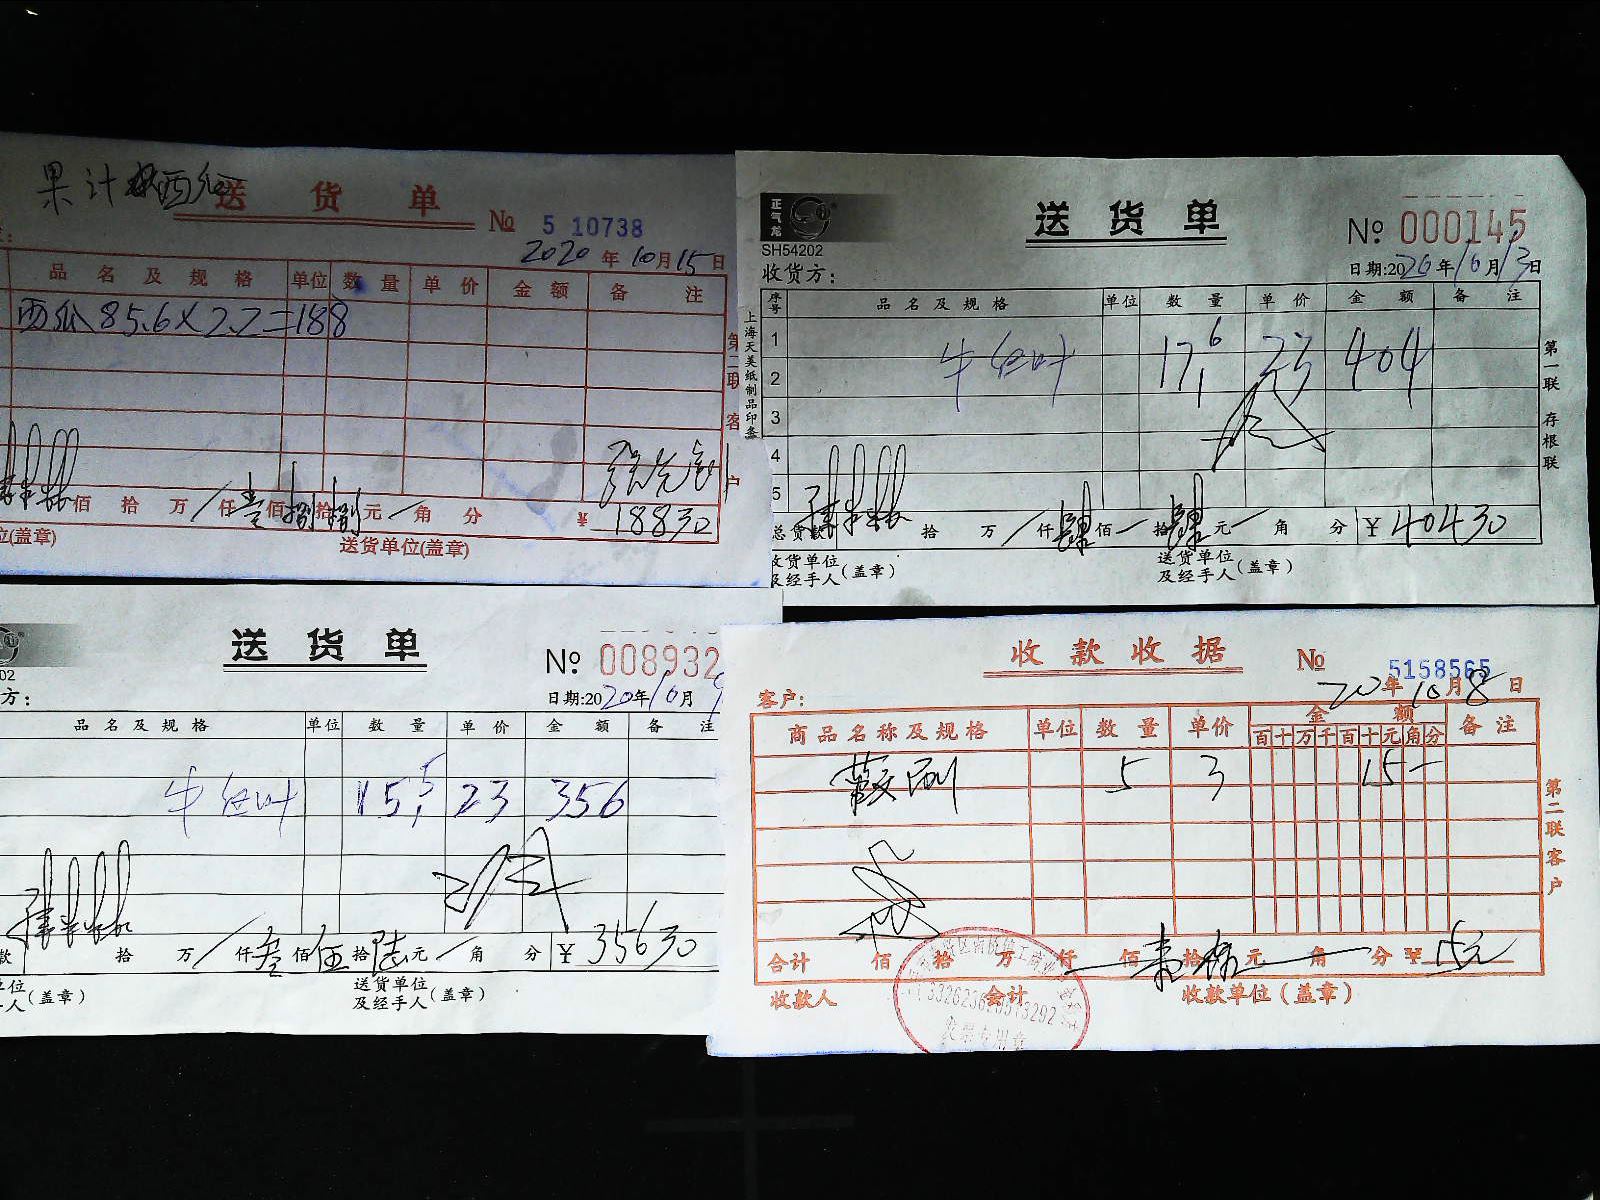 果汁西瓜
送货单
№ 5 10738
2020年10月15日
品名及规格 单位 数量 单价 金额 备注
西瓜 85.6×2.2=188
第二联 客户
佰 拾 万 / 仟 壹 佰 捌 拾 捌 元 角 分 ¥ 188元
位(盖章) 送货单位(盖章)
正气龙
SH54202
送货单
№ 000145
收货方:
日期:2020年10月13日
序号 品名及规格 单位 数量 单价 金额 备注
1
牛百叶 17.6 23 404
2
3
4
5
上海天美纸制品印务
第一联 存根联
总货款 拾 万 / 仟 肆 佰 拾 肆 元 角 分 ¥ 404元
收货单位及经手人(盖章) 送货单位及经手人(盖章)
02
送货单
№ 008932
方:
日期:2020年10月9
品名及规格 单位 数量 单价 金额 备注
牛百叶 15.5 23 356
款 拾 万 / 仟 叁 佰 伍 拾 陆 元 角 分 ¥ 356元
单位人(盖章) 送货单位及经手人(盖章)
收款收据
№ 5158565
客户:
20年10月8日
商品名称及规格 单位 数量 单价 金额 备注
百十万千百十元角分
5 3 15-
第二联 客户
合计 佰 拾 万 仟 佰 壹 拾 伍 元 角 分 ¥ 15元
收款人 会计 收款单位(盖章)
发票专用章